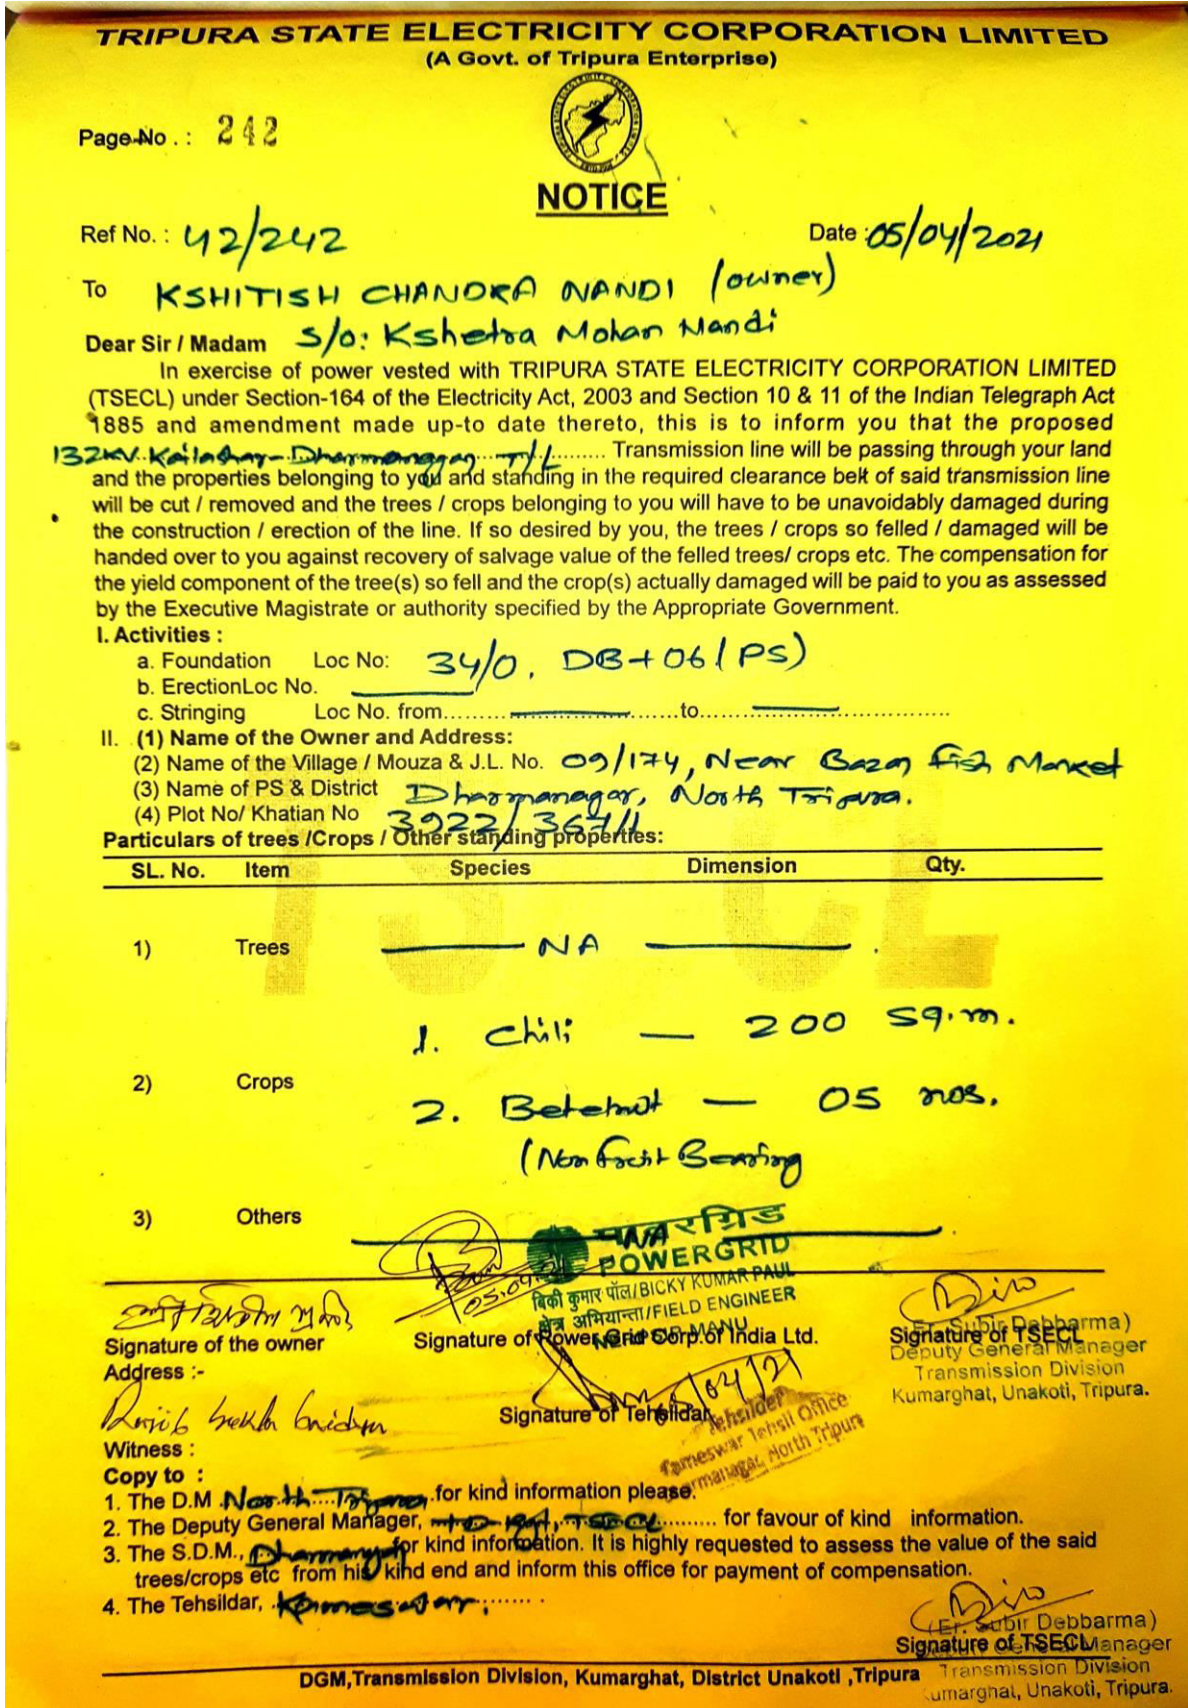 TRIPURA STATE ELECTRICITY CORPORATION LIMITED
(A Govt. of Tripura Enterprise)
Page No. : 242
NOTICE
Ref No. : 42/242 Date : 05/04/2021
To KSHITISH CHANDRA NANDI (owner)
Dear Sir / Madam S/o: Kshetra Mohan Nandi
In exercise of power vested with TRIPURA STATE ELECTRICITY CORPORATION LIMITED
(TSECL) under Section-164 of the Electricity Act, 2003 and Section 10 & 11 of the Indian Telegraph Act
1885 and amendment made up-to date thereto, this is to inform you that the proposed
132KV Kailashar-Dharmanagar T/L Transmission line will be passing through your land
and the properties belonging to you and standing in the required clearance belt of said transmission line
will be cut / removed and the trees / crops belonging to you will have to be unavoidably damaged during
the construction / erection of the line. If so desired by you, the trees / crops so felled / damaged will be
handed over to you against recovery of salvage value of the felled trees/ crops etc. The compensation for
the yield component of the tree(s) so fell and the crop(s) actually damaged will be paid to you as assessed
by the Executive Magistrate or authority specified by the Appropriate Government.
I. Activities :
a. Foundation Loc No: 34/0, DB+06 (PS)
b. ErectionLoc No.
c. Stringing Loc No. from.......to.......
II. (1) Name of the Owner and Address:
(2) Name of the Village / Mouza & J.L. No. 09/174, Near Bazar Fish Market
(3) Name of PS & District Dharmanagar, North Tripura.
(4) Plot No/ Khatian No 3922/367/1
Particulars of trees /Crops / Other standing properties:
SL. No. Item Species Dimension Qty.
TSECL
1) Trees — NA — .
1. Chili — 200 sq.m.
2) Crops
2. Betelnut — 05 nos.
(Non Fruit Bearing
3) Others NA
पावरग्रिड
POWERGRID
05.04.21
बिकी कुमार पॉल/BICKY KUMAR PAUL
क्षेत्र अभियान्ता/FIELD ENGINEER
NERPSIP, MANU
Signature of the owner Signature of Power Grid Corp.of India Ltd. Signature of TSECL
(Er. Subir Debbarma)
Deputy General Manager
Transmission Division
Kumarghat, Unakoti, Tripura.
Address :-
Signature of Tehsildar
Tehsilder
Kameswar Tehsil Office
Dharmanagar, North Tripura
Witness :
Copy to :
1. The D.M North Tripura for kind information please.
2. The Deputy General Manager, TSECL for favour of kind information.
3. The S.D.M., Dharmanagar for kind information. It is highly requested to assess the value of the said
trees/crops etc from his kind end and inform this office for payment of compensation.
4. The Tehsildar, Kameswar.
(Er. Subir Debbarma)
Signature of TSECL
Deputy General Manager
Transmission Division
Kumarghat, Unakoti, Tripura.
DGM,Transmission Division, Kumarghat, District Unakoti ,Tripura